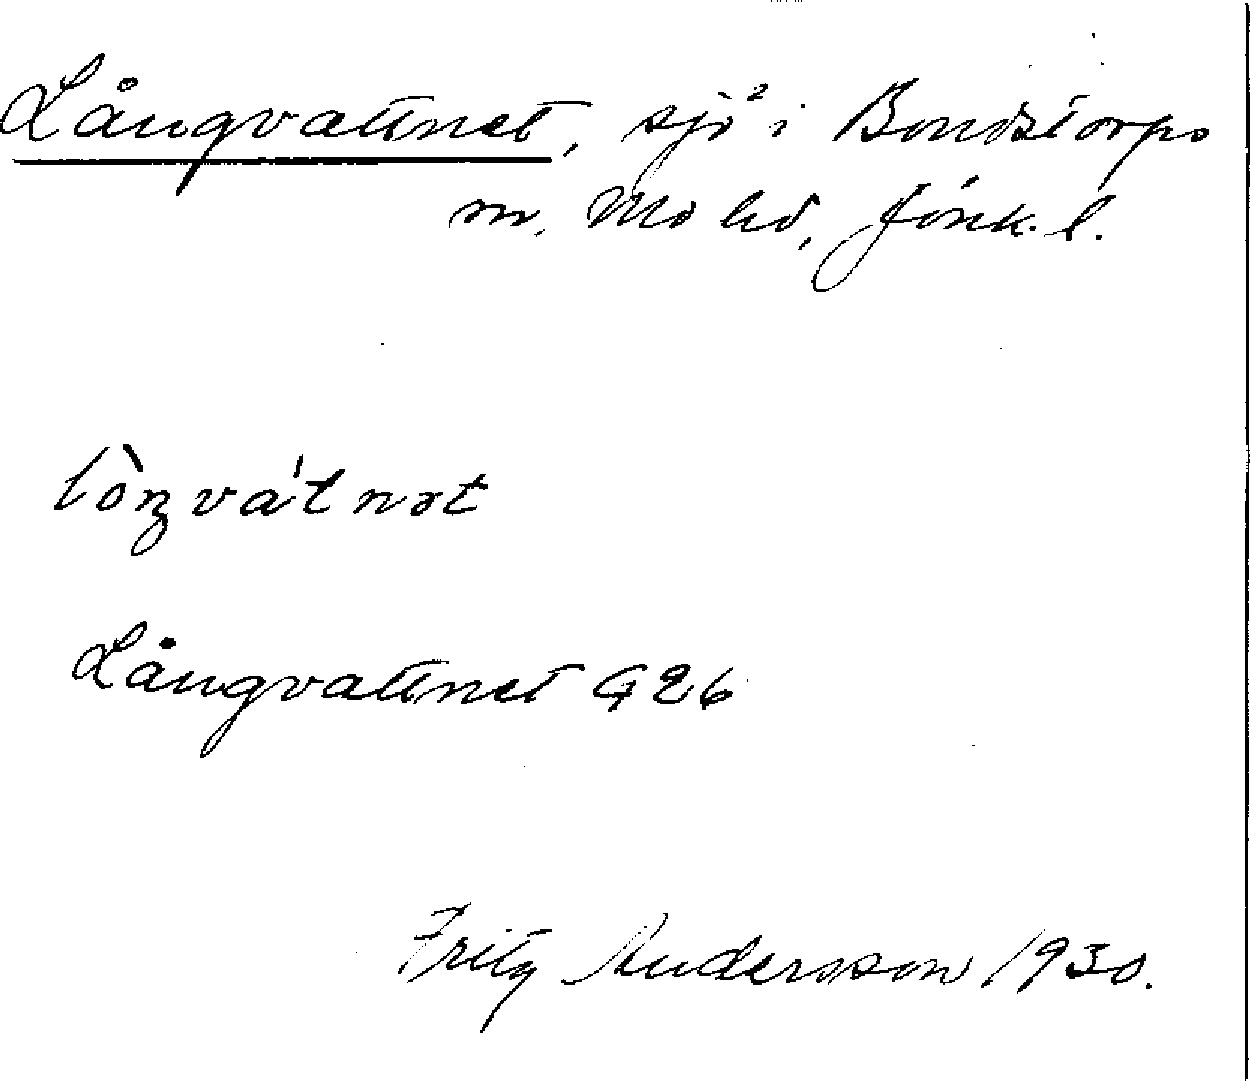 Långvattnet, sjö² i Bondstorps
m. Mo hd, Jönk. l.
lòŋvátnət
Långvattnet G26
Fritz Andersson 1930.